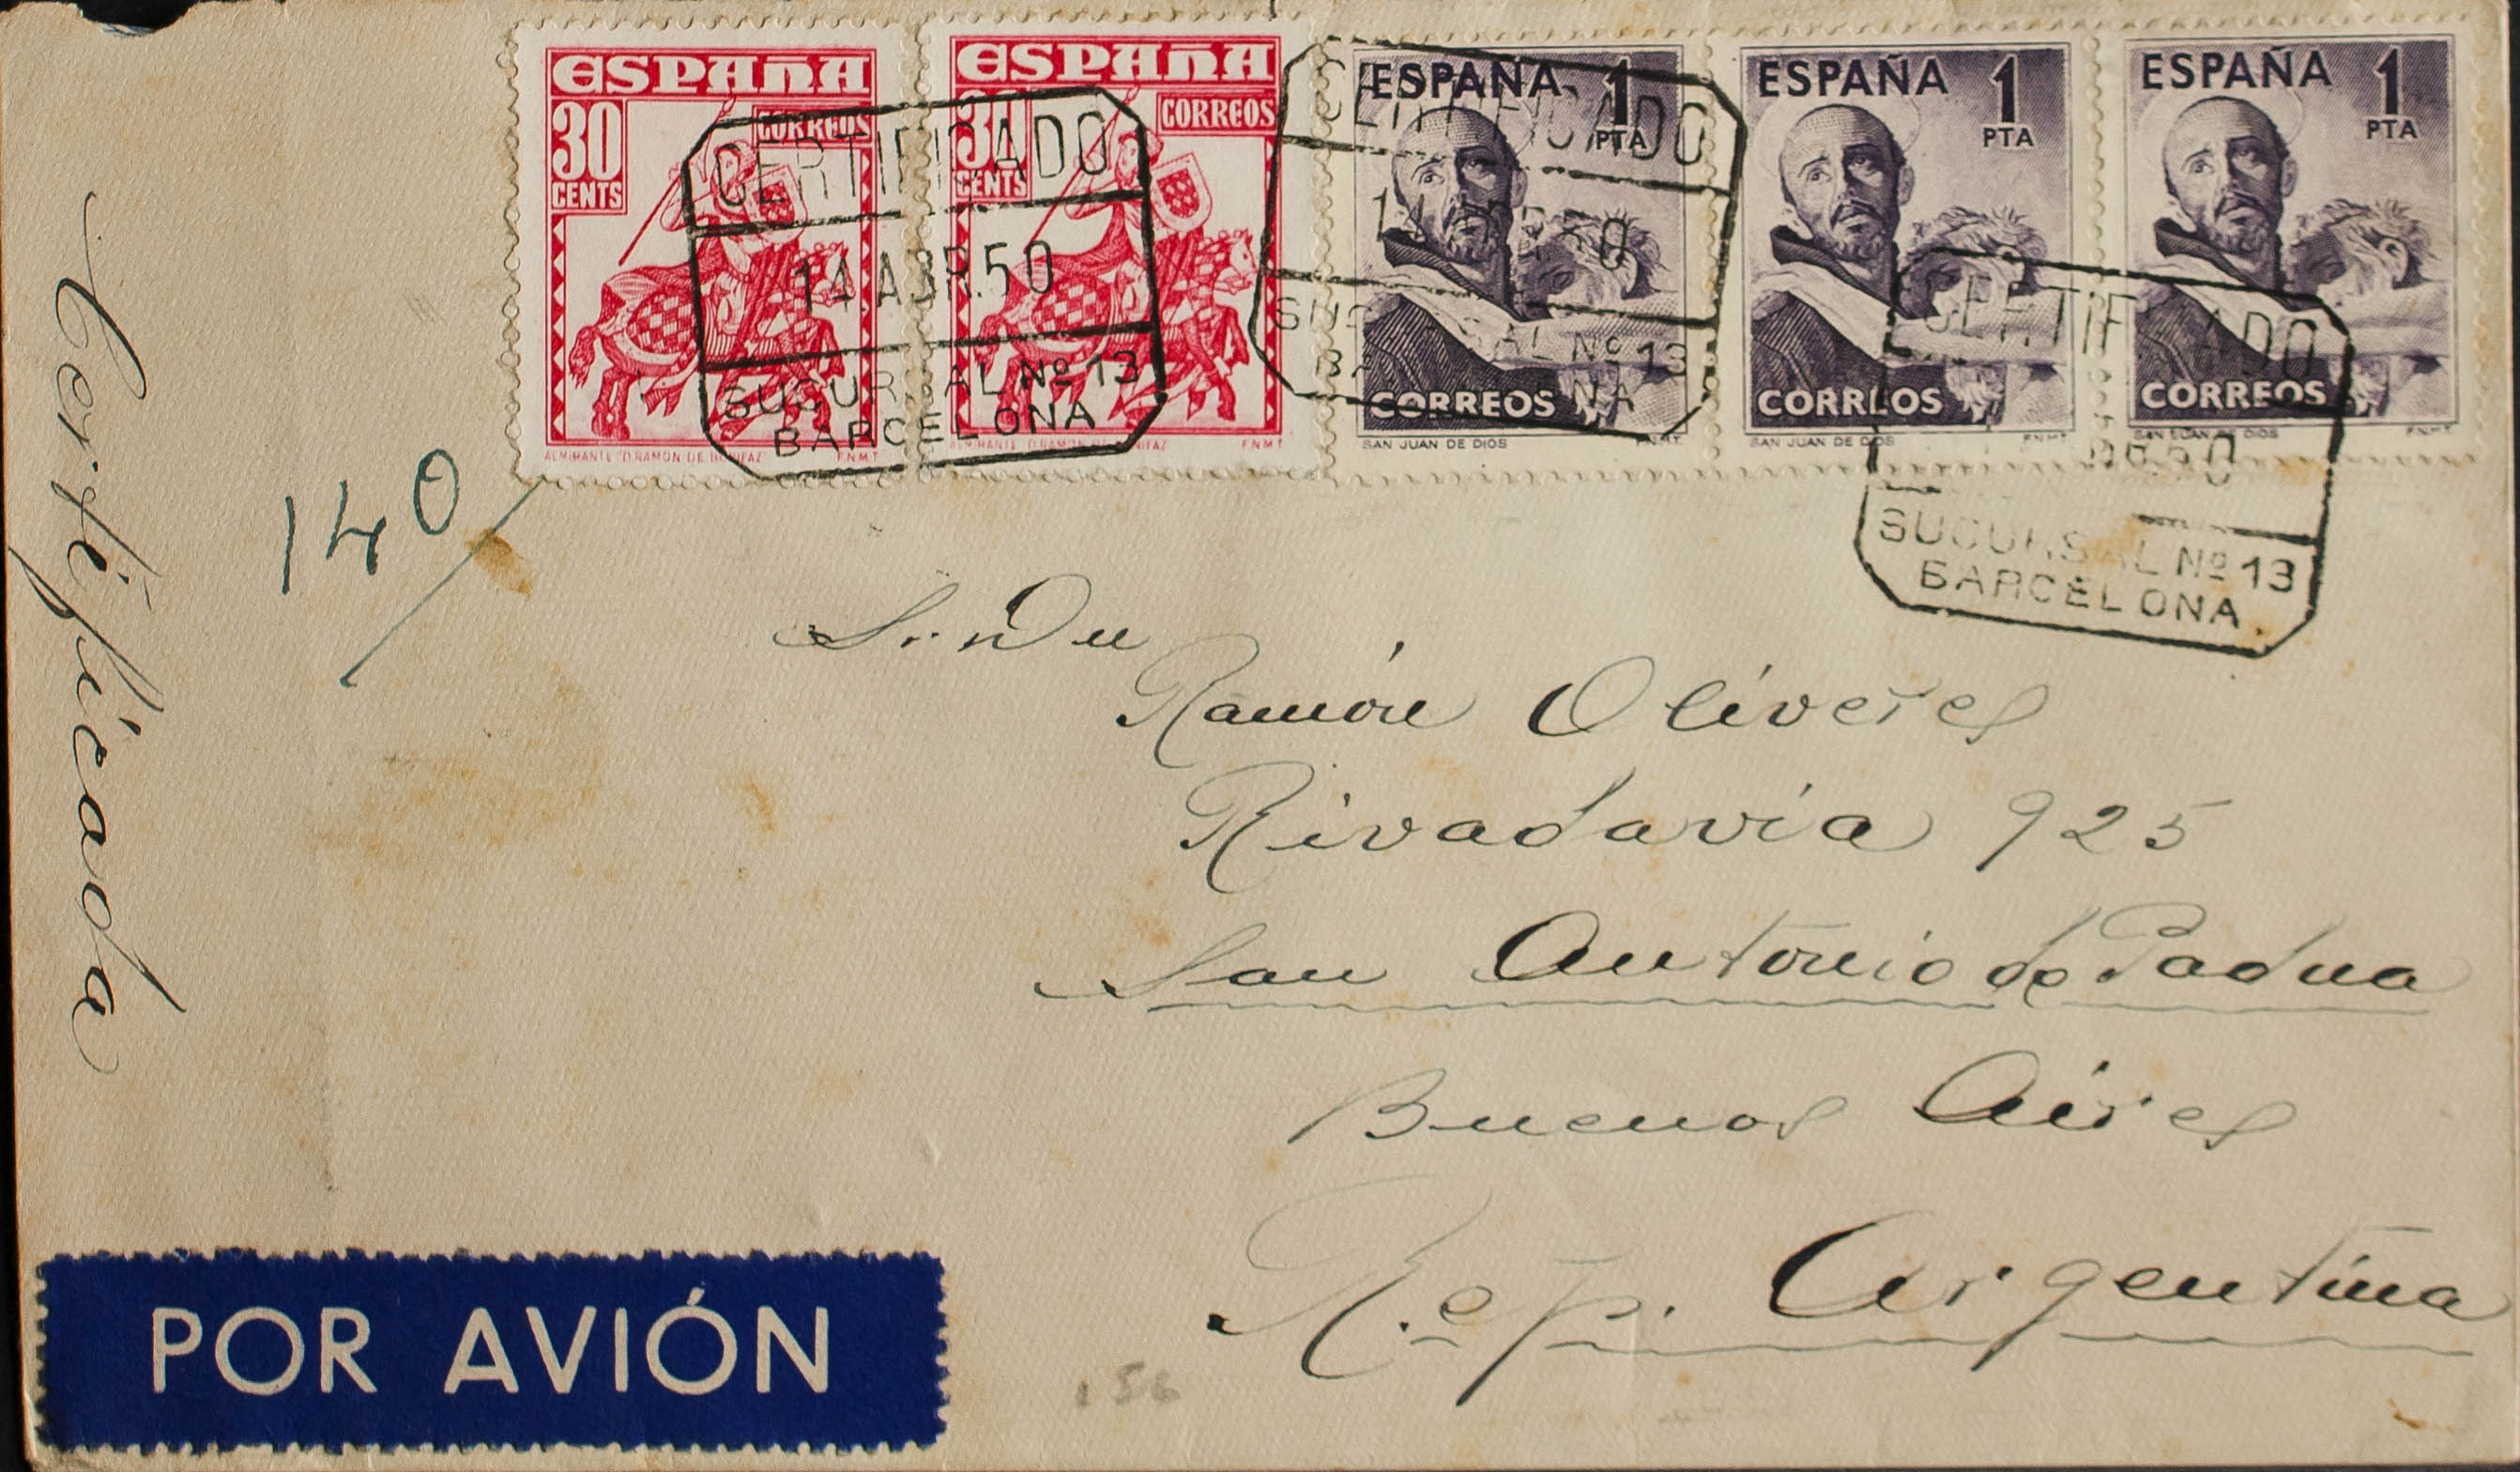 ESPAÑA
30
CENTS
CORREOS
ALMIRANTE "D.RAMON DE BONIFAZ" F.N.M.T.
ESPAÑA
30
CENTS
CORREOS
ALMIRANTE "D.RAMON DE BONIFAZ" F.N.M.T.
ESPAÑA 1
PTA
CORREOS
SAN JUAN DE DIOS F.N.M.T.
ESPAÑA 1
PTA
CORREOS
SAN JUAN DE DIOS F.N.M.T.
ESPAÑA 1
PTA
CORREOS
SAN JUAN DE DIOS F.N.M.T.
CERTIFICADO
14 ABR.50
SUCURSAL Nº 13
BARCELONA
CERTIFICADO
14 ABR 50
SUCURSAL Nº 13
BARCELONA
CERTIFICADO
SUCURSAL Nº 13
BARCELONA.
Certificada
140
Ramón Oliveres
Rivadavia 925
San Antonio de Padua
Buenos Aires
Rep. Argentina
POR AVIÓN
156